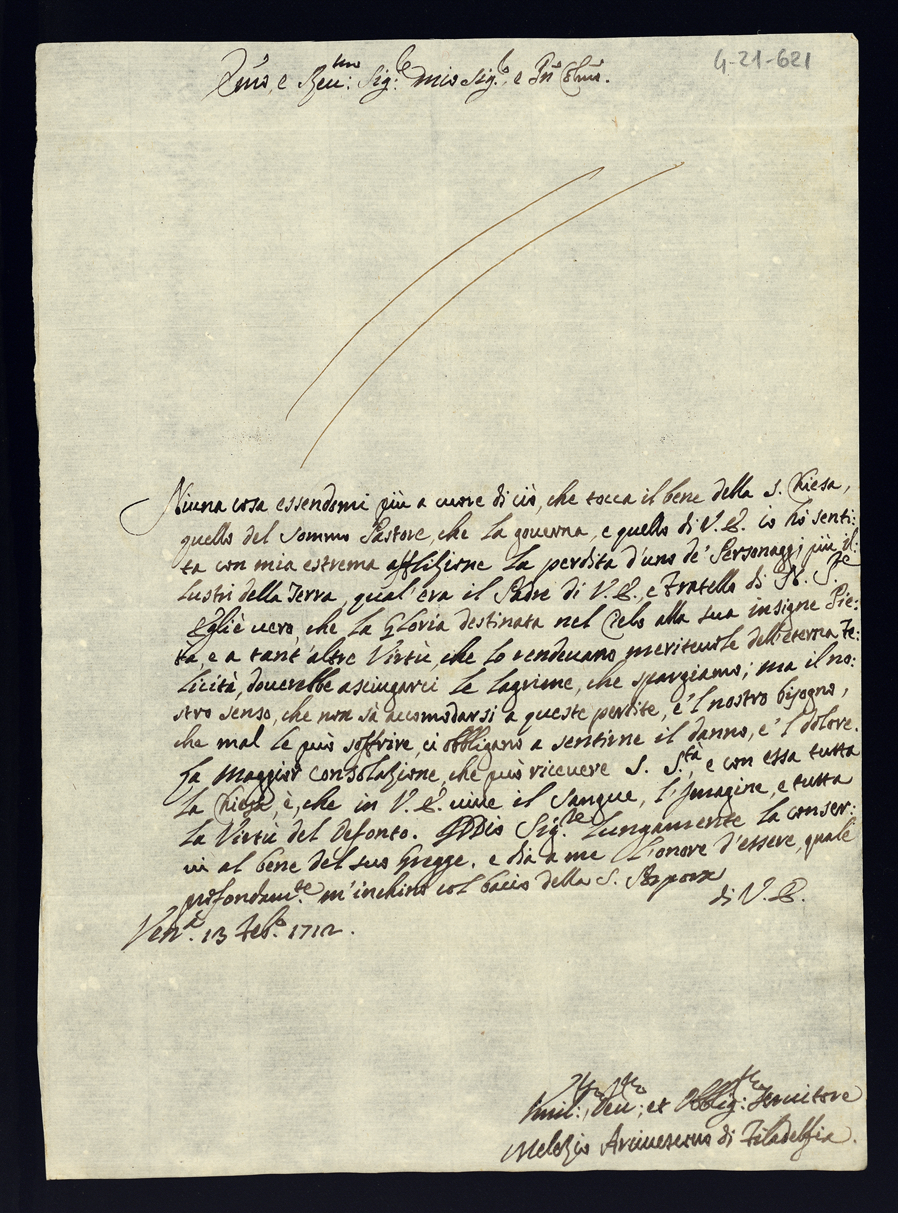 4-21-621
Em̃o, e Reu:mo Sig:re mio Sig:re, e Pñe Colm̃o.
Niuna cosa essendomi più a cuore di ciò, che tocca il bene della S. Chiesa,
quello del Sommo Pastore, che la gouerna, e quello di V. E. io hò senti:
ta con mia estrema afflizione la perdita d'uno de' Personaggi più il:
lustri della Terra, qual'era il Padre di V. E., e Fratello di N. S.re
Egli è uero, che la Gloria destinata nel Cielo alla sua insigne Pie:
tà, e a tant'altre Virtù, che lo rendeuano meriteuole dell'eterna Fe:
licità, douerebbe asciugarci le lagrime, che spargiamo; ma il no:
stro senso, che non sà accomodarsi a queste perdite, e'l nostro bisogno,
che mal le può soffrire, ci obbligano a sentirne il danno, e'l dolore.
La Maggior Consolazione, che può riceuere S. S.tà, e con essa tutta
la Chiesa, è, che in V. E. uiue il Sangue, l'Imagine, e tutta
la Virtù del Defonto. IDDio Sig.re lungamente la conser:
ui al bene del suo Gregge, e dia a me l'onore d'essere, quale
profondam.te m'inchino col bacio della S. Porpora
di V. E.
Ven.a 13 Feb.o 1712.
Vmil:mo, Deu:mo, et Obblig:mo Seruitore
Melezio Arciuescouo di Filadelfia.